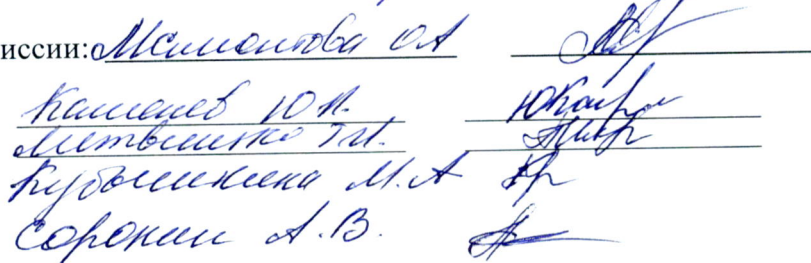 иссии: Мамонтова ОА
Кашенев Ю.Н.
Литвиненко Т.И.
Кубышкина М.А
Сорокин А.В.